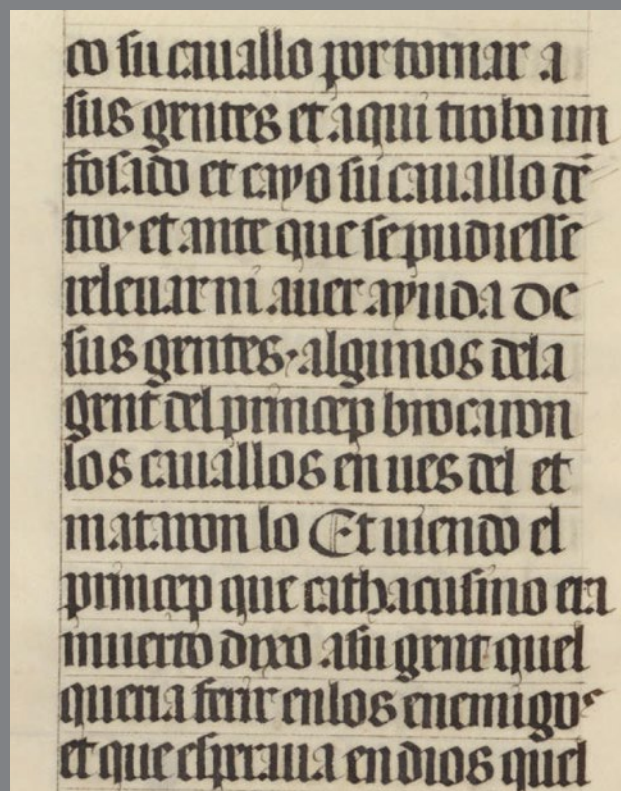 co su cauallo por tornar a
sus gentes et aqui trobo un
fosado et cayo su cauallo de
tro· et ante que se pudiesse
releuar ni auer ayuda de
sus gentes· algunos dela
gent del princep brocaron
los cauallos en ues del et
mataron lo Et uiendo el
princep que cathacusino era
muerto dixo asu gent quel
queria ferir enlos enemigos
et que esperaua en dios quel